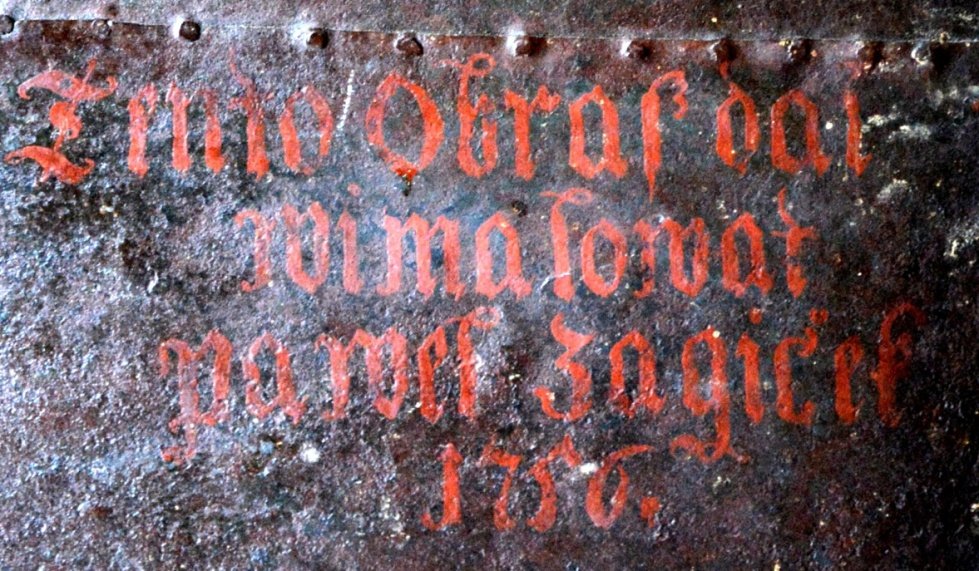 Tento Obraz dal
wimalowat
pawel Zagiček
1756.